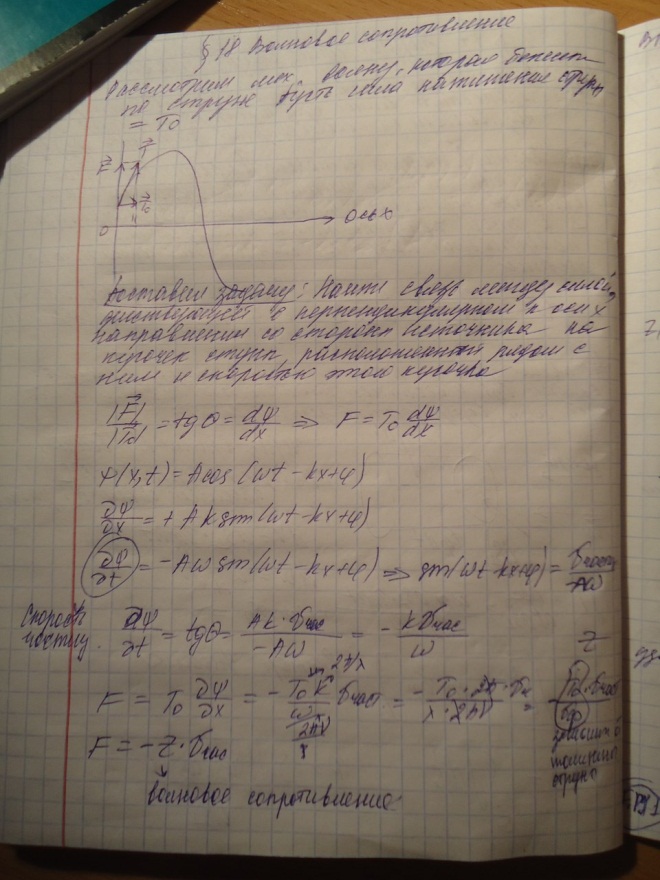 § 18 Волновое сопротивление
Рассмотрим мех. волну, которая бежит
по струне. Пусть сила натяжения струны
= T₀
F⃗ T⃗
T⃗₀
0 ось x
Поставим задачу: Найти связь между силой,
действующей в перпендикулярном к оси x
направлении со стороны источника на
кусочек струны, расположенный рядом с
ним и скоростью этого кусочка
|F⃗|/|T⃗₀| = tgθ = dψ/dx ⇒ F = T₀ dψ/dx
ψ(x,t) = A cos(ωt - kx + φ)
∂ψ/∂x = + Ak sin(ωt - kx + φ)
∂ψ/∂t = -Aω sin(ωt - kx + φ) ⇒ sin(ωt - kx + φ) = υчаст/-Aω
Скорость частиц. ∂ψ/∂t = tgθ = Ak·υчас/-Aω = - kυчас/ω
Z
F = T₀ ∂ψ/∂x = - T₀k/ω υчаст. = - T₀·2π·υч/λ·2πν = T₀·υчаст/υф
2π/λ
2πν
зависит от
толщины
струны
F = -Z·υчас
волновое сопротивление